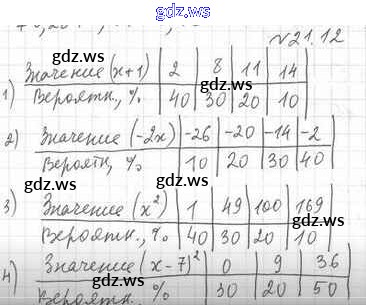 gdz.ws
№21.12
gdz.ws gdz.ws
1) Значение (x+1) 2 8 11 14
Вероятн., % 40 30 20 10
gdz.ws gdz.ws
2) Значение (-2x) -26 -20 -14 -2
Вероятн, % 10 20 30 40
gdz.ws gdz.ws
3) Значение (x²) 1 49 100 169
Вероятн., % 40 30 20 10
gdz.ws gdz.ws
4) Значение (x-7)² 0 9 36
Вероятн., % 30 20 50
gdz.ws gdz.ws